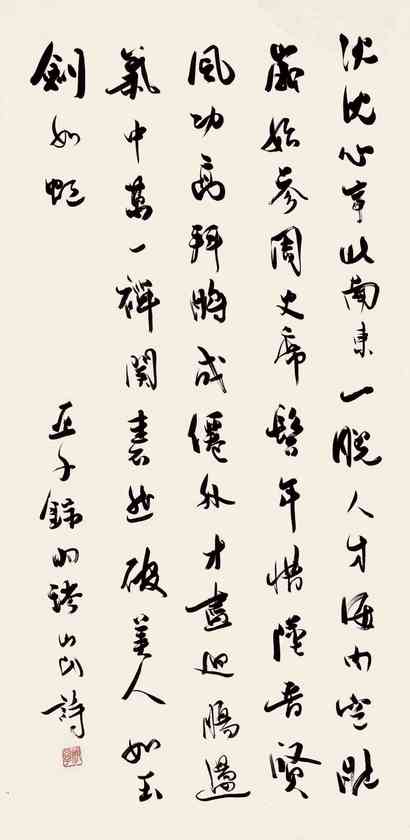 沈沈心事北南東一睨人才海内空壯
歲始參周史席髫年惜墮晉賢
風功高拜將成僊外才盡迴腸盪
氣中萬一禪関砉然破美人如玉
劍如虹
亞子錄羽琌山民詩